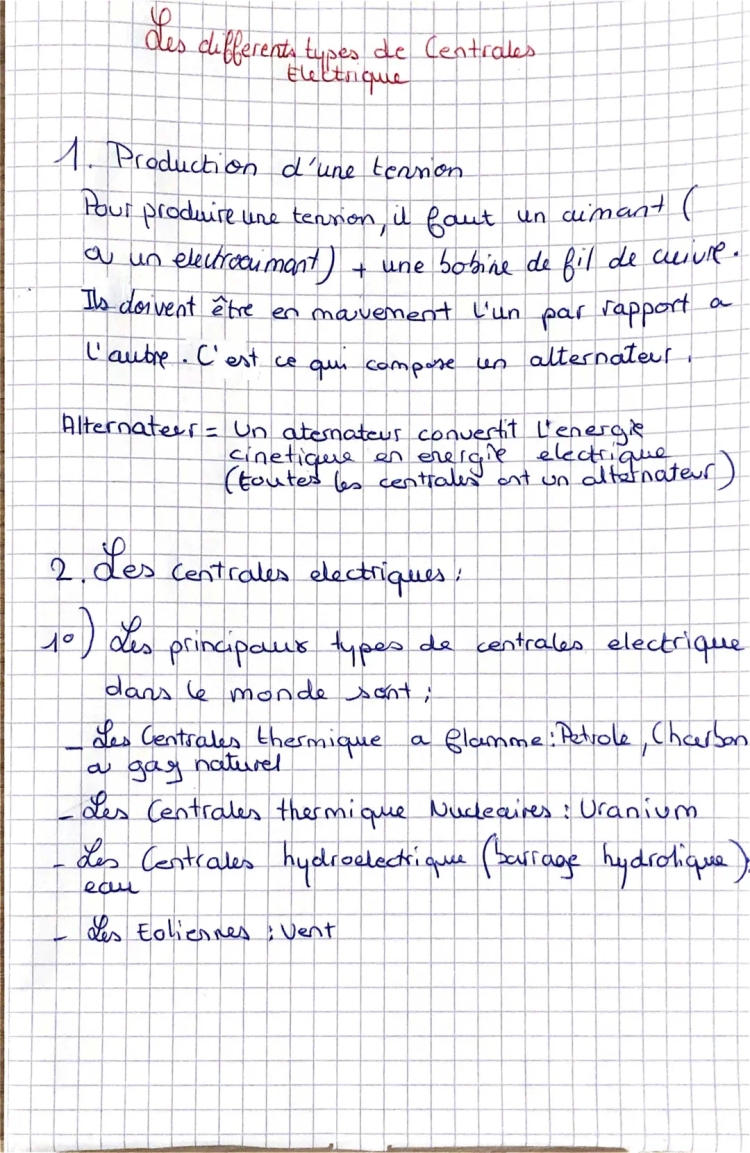 Les differents types de Centrales
Electrique
1. Production d'une tension
Pour produire une tension, il faut un aimant (
ou un electroaimant) + une bobine de fil de cuivre.
Ils doivent être en mouvement l'un par rapport a
l'autre. C'est ce qui compose un alternateur.
Alternateur = Un aternateur convertit l'energie
cinetique en energie electrique
(toutes les centrales ont un alternateur)
2. Les centrales electriques :
1°) Les principaux types de centrales electrique
dans le monde sont ;
- Les Centrales thermique a flamme : Petrole, Charbon
ou gaz naturel
- Les Centrales thermique Nucleaires : Uranium
- Les Centrales hydroelectrique (barrage hydrolique) :
eau
- Les Eoliennes : Vent